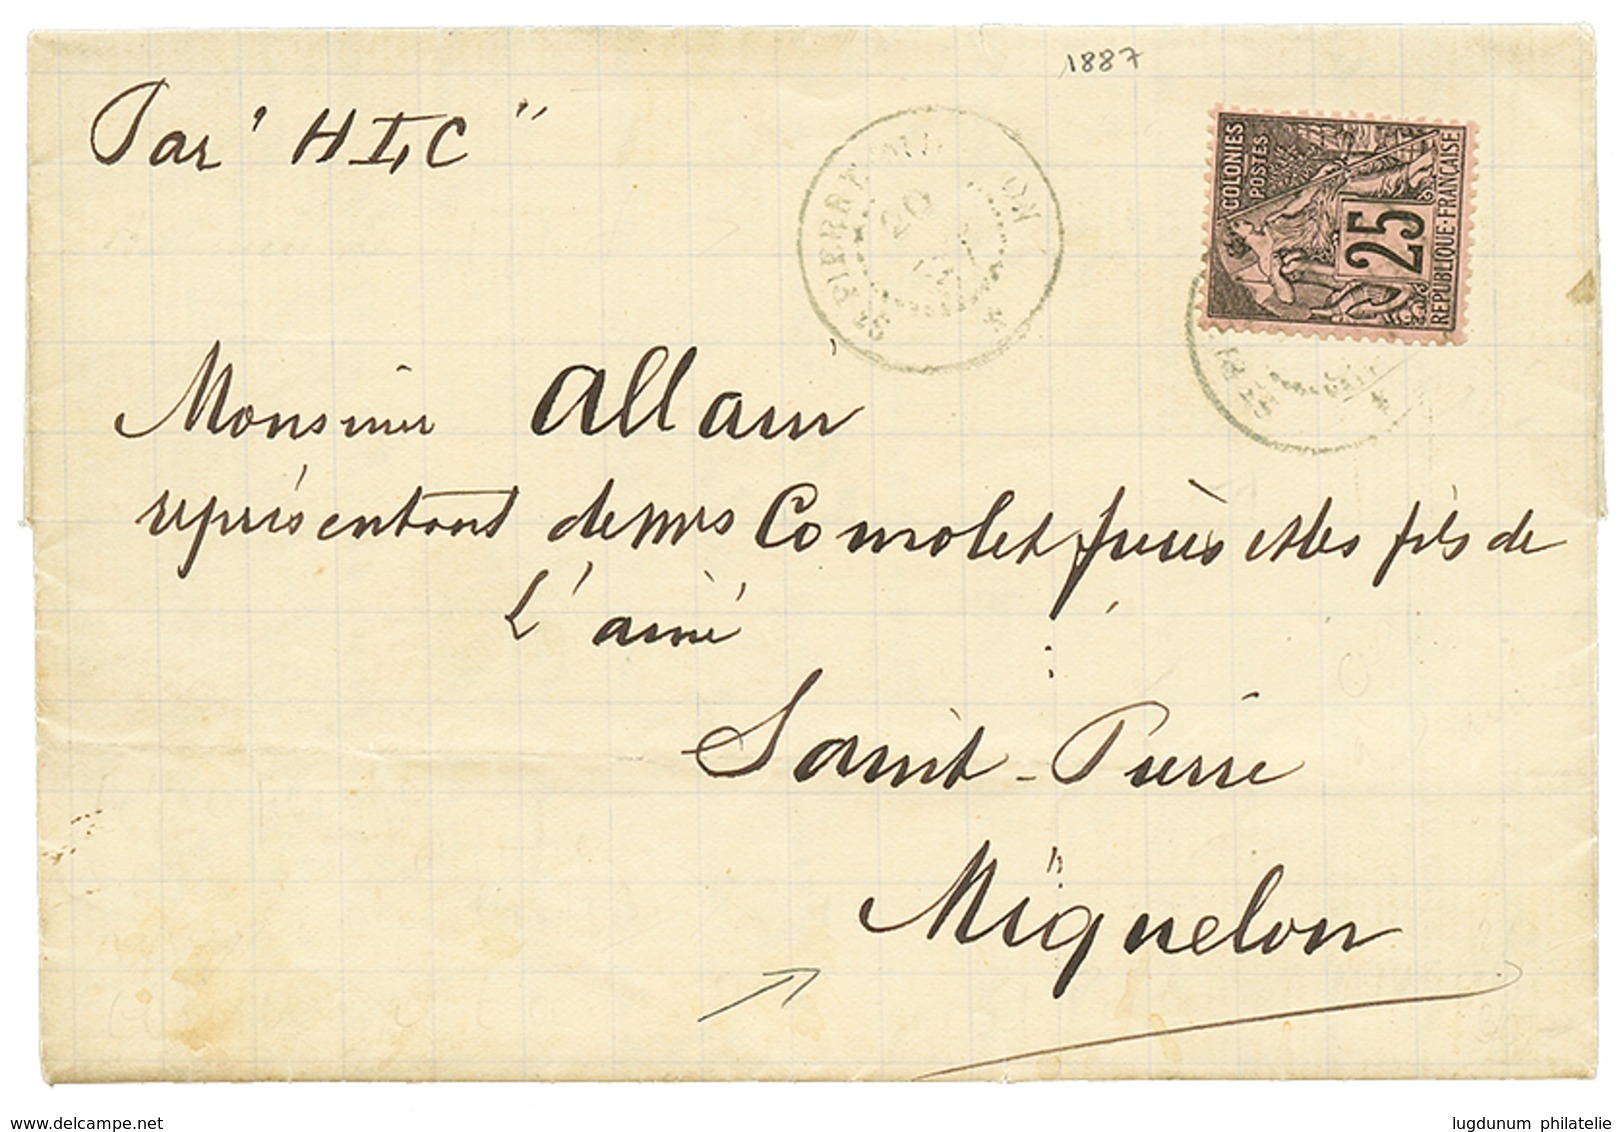 1887
Par "HI,C"
ST PIERRE
ON
20
COLONIES
POSTES
25
REPUBLIQUE-FRANÇAISE
Monsieur Allain
représentant de MMrs Comolet frères et les fils de
L'ainé
Saint-Pierre
Miquelon
lugdunum philatelie